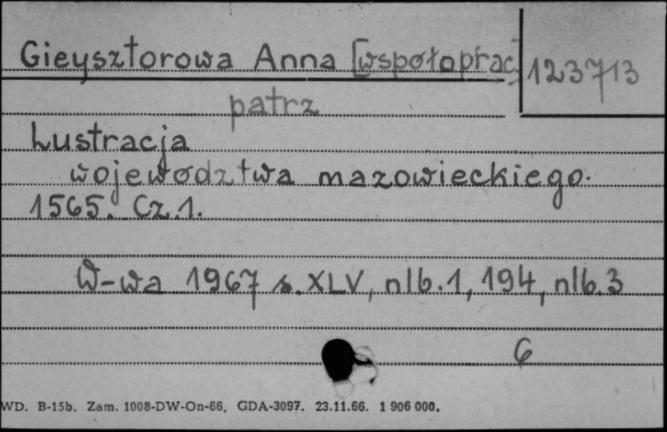 Gieysztorowa Anna [współoprac
123713
patrz
Lustracja
województwa mazowieckiego.
1565. Cz.1.
W-wa 1967 s. XLV, nlb. 1, 194, nlb. 3
6
WD. B-15b. Zam. 1008-DW-On-66. GDA-3097. 23.11.66. 1 906 000.